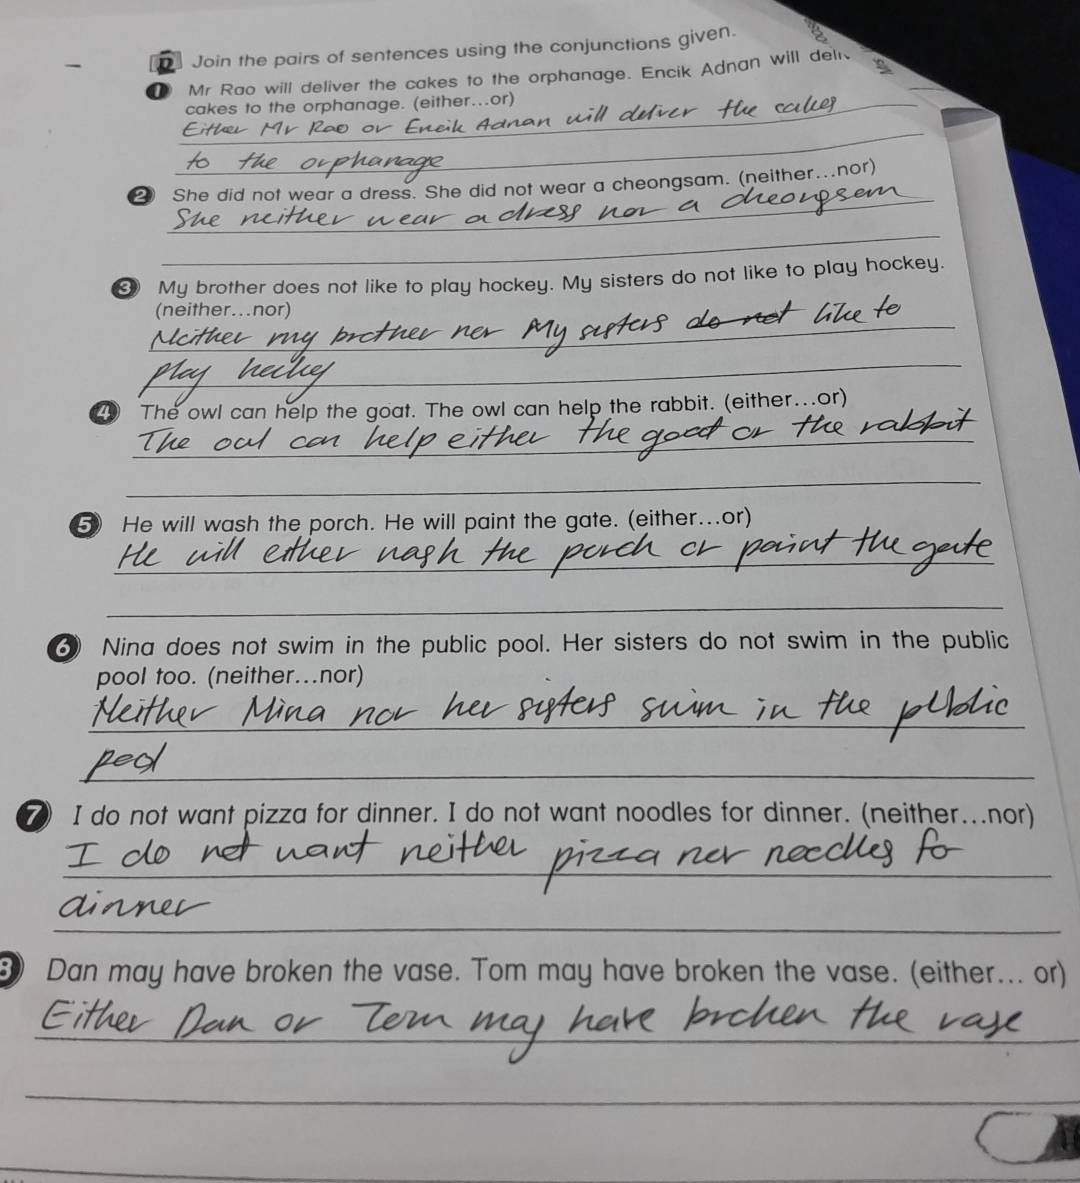 D Join the pairs of sentences using the conjunctions given.
1 Mr Rao will deliver the cakes to the orphanage. Encik Adnan will
cakes to the orphanage. (either...or)
Either Mr Rao or Encik Adnan will deliver the cakes
to the orphanage
2 She did not wear a dress. She did not wear a cheongsam. (neither...nor)
She neither wear a dress nor a cheongsem
3 My brother does not like to play hockey. My sisters do not like to play hockey.
(neither...nor)
Neither my brother nor My sisters do not like to
play
4 The owl can help the goat. The owl can help the rabbit. (either...or)
The owl can help either the goat or the rabbit
5 He will wash the porch. He will paint the gate. (either...or)
He will either wash the porch or paint the gate
6 Nina does not swim in the public pool. Her sisters do not swim in the public
pool too. (neither...nor)
Neither Nina nor her sisters swim in the public
pool
7 I do not want pizza for dinner. I do not want noodles for dinner. (neither...nor)
I do not want neither pizza nor noodles fo
dinner
8 Dan may have broken the vase. Tom may have broken the vase. (either... or)
Either Dan or Tom may have broken the vase